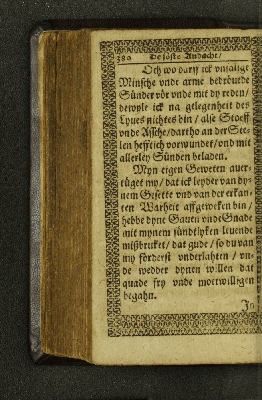 380 De söste Andacht/
Och wo darff ick vnsalige
Minsche vnde arme bedröuede
Sünder vör vnde mit dy reden/
dewyle ick na gelegenheit des
Lyues nichtes bin / alse Stoeff
vnde Assche/ dartho an der See-
len hefftich vorwundet/ vnd mit
allerley Sünden beladen.
Myn eigen Geweten auer-
tüget my/ dat ick leyder van dy-
nem Gesette vnd van der erkan-
ten Warheit affgeweken bin/
hebbe dyne Gauen vnde Gnade
mit mynem sündtlyken leuende
mißbruket/ dat gude/ so du van
my förderst vnderlahten / vn-
de wedder dynen willen dat
quade fry vnde mottwilligen
begahn.